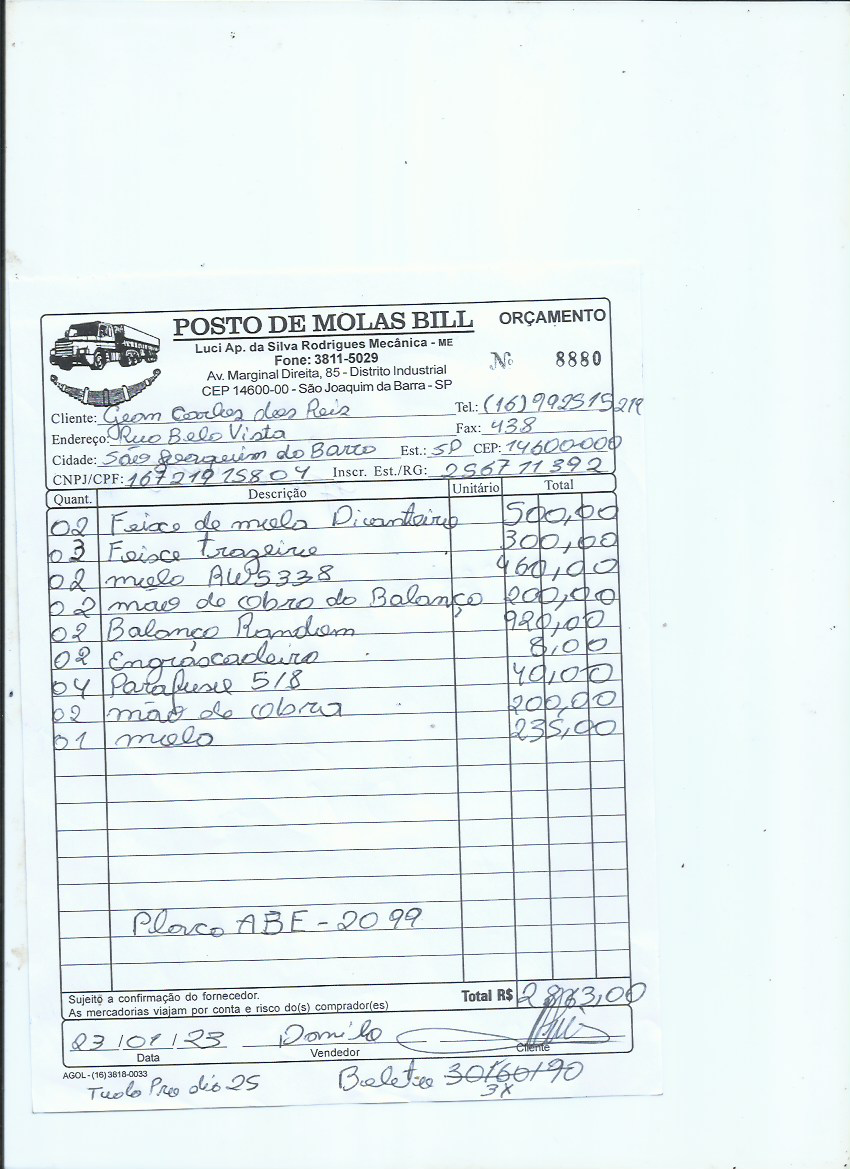 POSTO DE MOLAS BILL
ORÇAMENTO
Luci Ap. da Silva Rodrigues Mecânica - ME
Fone: 3811-5029
Av. Marginal Direita, 85 - Distrito Industrial
CEP 14600-00 - São Joaquim da Barra - SP
Nº 8880
Cliente: Geom Carlos dos Reis Tel.: (16) 992515219
Endereço: Rua Belo Vista Fax: 438
Cidade: São Joaquim do Barro Est.: SP CEP: 14600000
CNPJ/CPF: 16721915804 Inscr. Est./RG: 256711392
Quant. Descrição Unitário Total
02 Feixe de molo Dianteiro 500,00
03 Feixe trazeiro 300,00
02 molo AW5338 460,00
02 mao de obro do Balanço 200,00
02 Balanço Random 920,00
02 Engraxadeiro 8,00
04 Parafuso 5/8 40,00
02 mão de obra 200,00
01 molo 235,00
Placo ABE-2099
Sujeito a confirmação do fornecedor.
As mercadorias viajam por conta e risco do(s) comprador(es)
Total R$ 2863,00
23/01/23 Danilo
Data Vendedor Cliente
AGOL - (16) 3818-0033
Tudo Pro dio 25
Boleto 30/60/90
3x